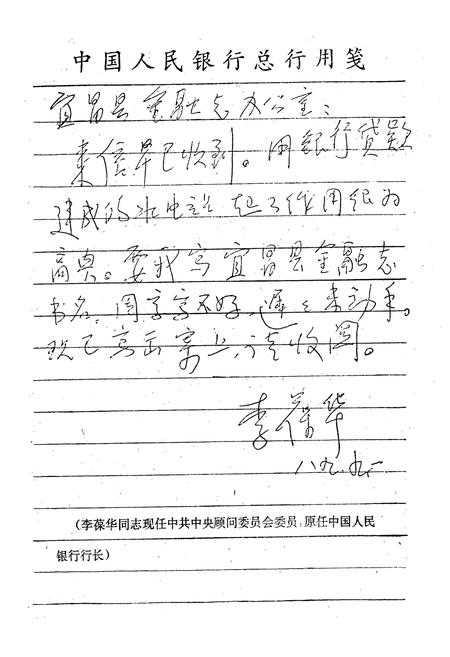 中国人民银行总行用笺
宜昌县金融志办公室：
来信早已收到。用银行贷款
建成的水电站起了作用很为
高兴。要我写宜昌县金融志
书名，因字写不好，迟迟未动手。
现已写出寄上，请收阅。
李葆华
八九.九.一
(李葆华同志现任中共中央顾问委员会委员,原任中国人民
银行行长)